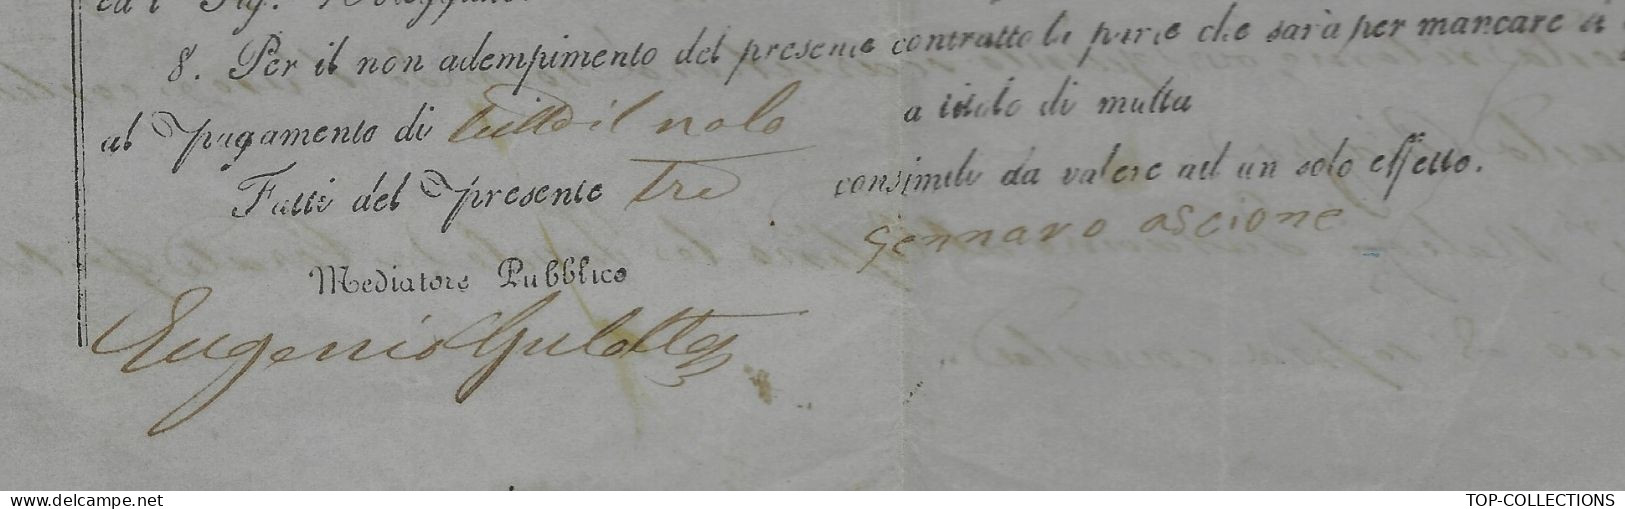 ed i Sig. Noleggiato
8. Per il non adempimento del presente contratto la parte che sarà per mancare
al pagamento di tutto il nolo a titolo di multa
Fatti del presente tre consimili da valere ad un solo effetto.
Gennaro Ascione
Mediatore Pubblico
Eugenio Gulotta
www.delcampe.net
TOP-COLLECTIONS